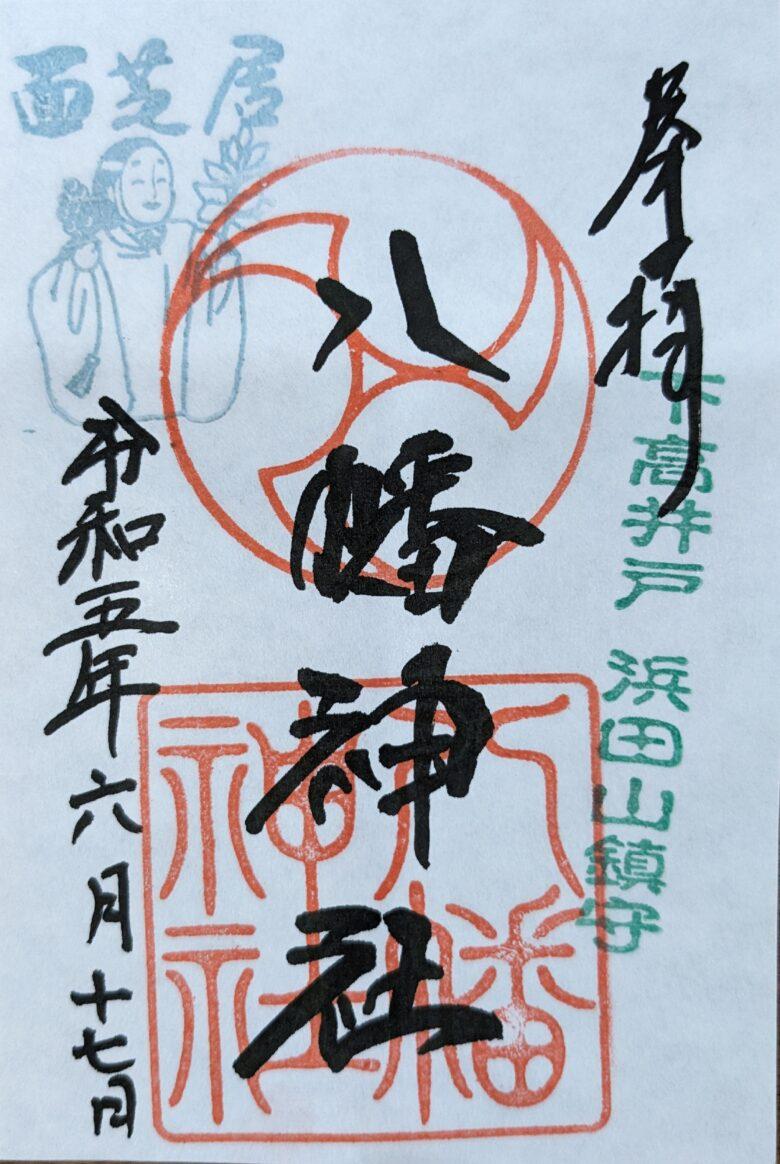 奉拝
下高井戸 浜田山鎮守
八幡神社
八幡神社
令和五年六月十七日
面芝居